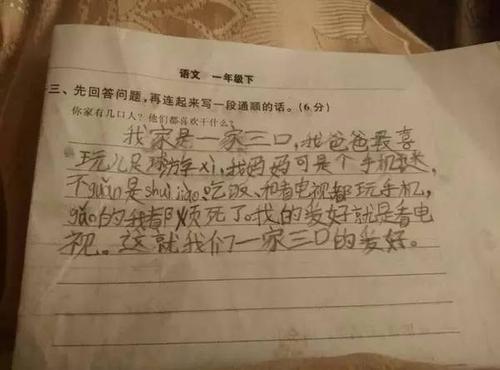 语文 一年级下
三、先回答问题,再连起来写一段通顺的话。(6分)
你家有几口人?他们都喜欢干什么?
我家是一家三口,我爸爸最喜
玩儿足球游xì,我妈妈可是个手机迷,
不guǎn是shuì jiào、吃饭、和看电视都玩手机,
gǎo的我都烦死了。我的爱好就是看电
视。这就我们一家三口的爱好。